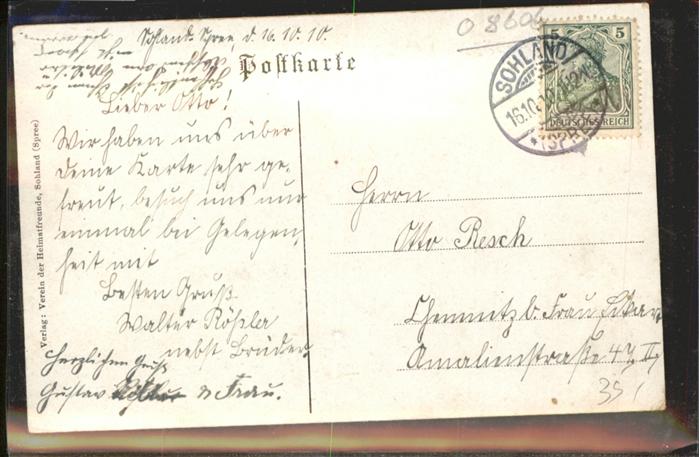 Sohland Spree, d 16.10.10.
Postkarte
Lieber Otto!
Wir haben uns über
deine Karte sehr ge-
freut, besuch uns nur
einmal bei Gelegen-
heit mit
Besten Gruß
Walter Rößler
nebst Brüder
Herzlichen Gruß
Gustav u Frau.
Verlag: Verein der Heimatfreunde, Sohland (Spree)
O 8606
SOHLAND
16.10.10
(SPREE)
5 5
DEUTSCHES REICH
Herrn
Otto Resch
Chemnitz b. Frau
Amalienstraße 47 II
35